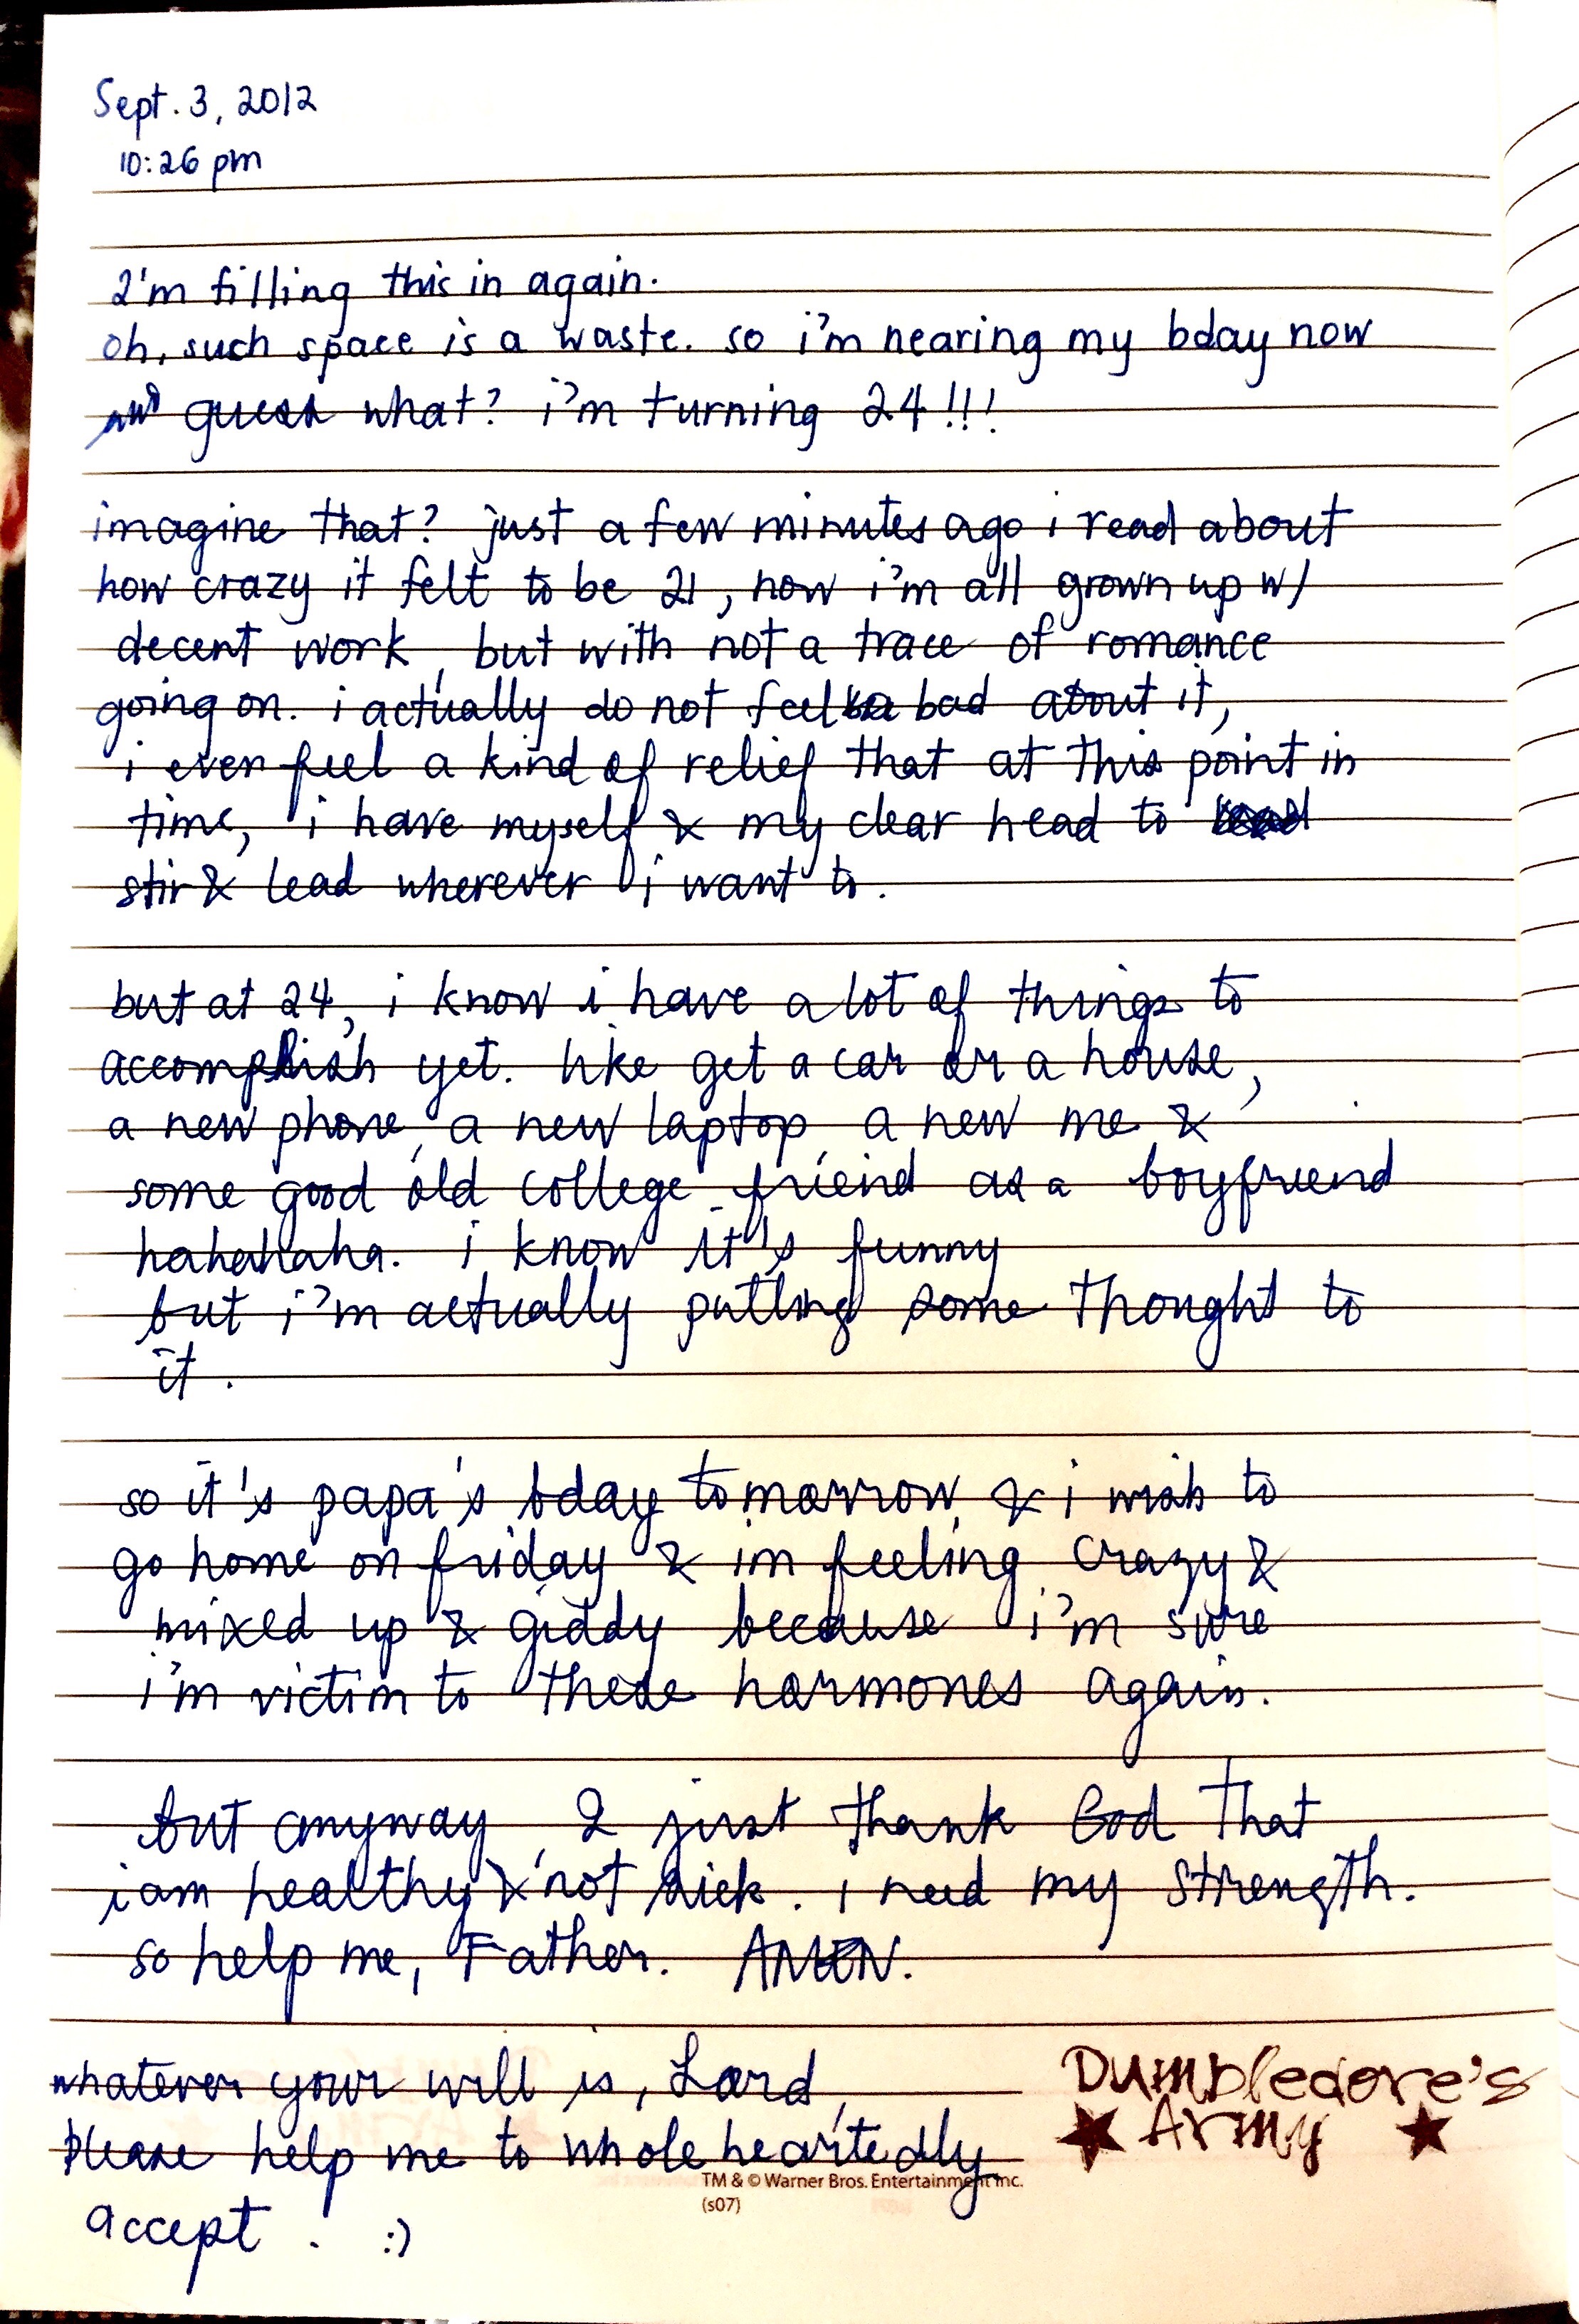 Sept. 3, 2012
10:26 pm
I'm filling this in again.
oh, such space is a waste. so i'm nearing my bday now
and guess what? i'm turning 24!!!
imagine that? just a few minutes ago i read about
how crazy it felt to be 21, now i'm all grown up w/
decent work, but with not a trace of romance
going on. i actually do not feel bad about it,
i even feel a kind of relief that at this point in
time, i have myself & my clear head to
stir & lead wherever i want to.
but at 24, i know i have a lot of things to
accomplish yet. like get a car or a house,
a new phone, a new laptop, a new me &
some good old college friend as a boyfriend
hahahaha. i know it's funny
but i'm actually putting some thought to
it.
so it's papa's bday tomorrow, & i wish to
go home on friday & im feeling crazy &
mixed up & giddy because i'm sure
i'm victim to these hormones again.
but anyway, I just thank God that
i am healthy & not sick. i need my strength.
so help me, Father. AMEN.
whatever your will is, Lord,
please help me to wholeheartedly
accept. :)
Dumbledore's
★ Army ★
TM & © Warner Bros. Entertainment Inc.
(s07)